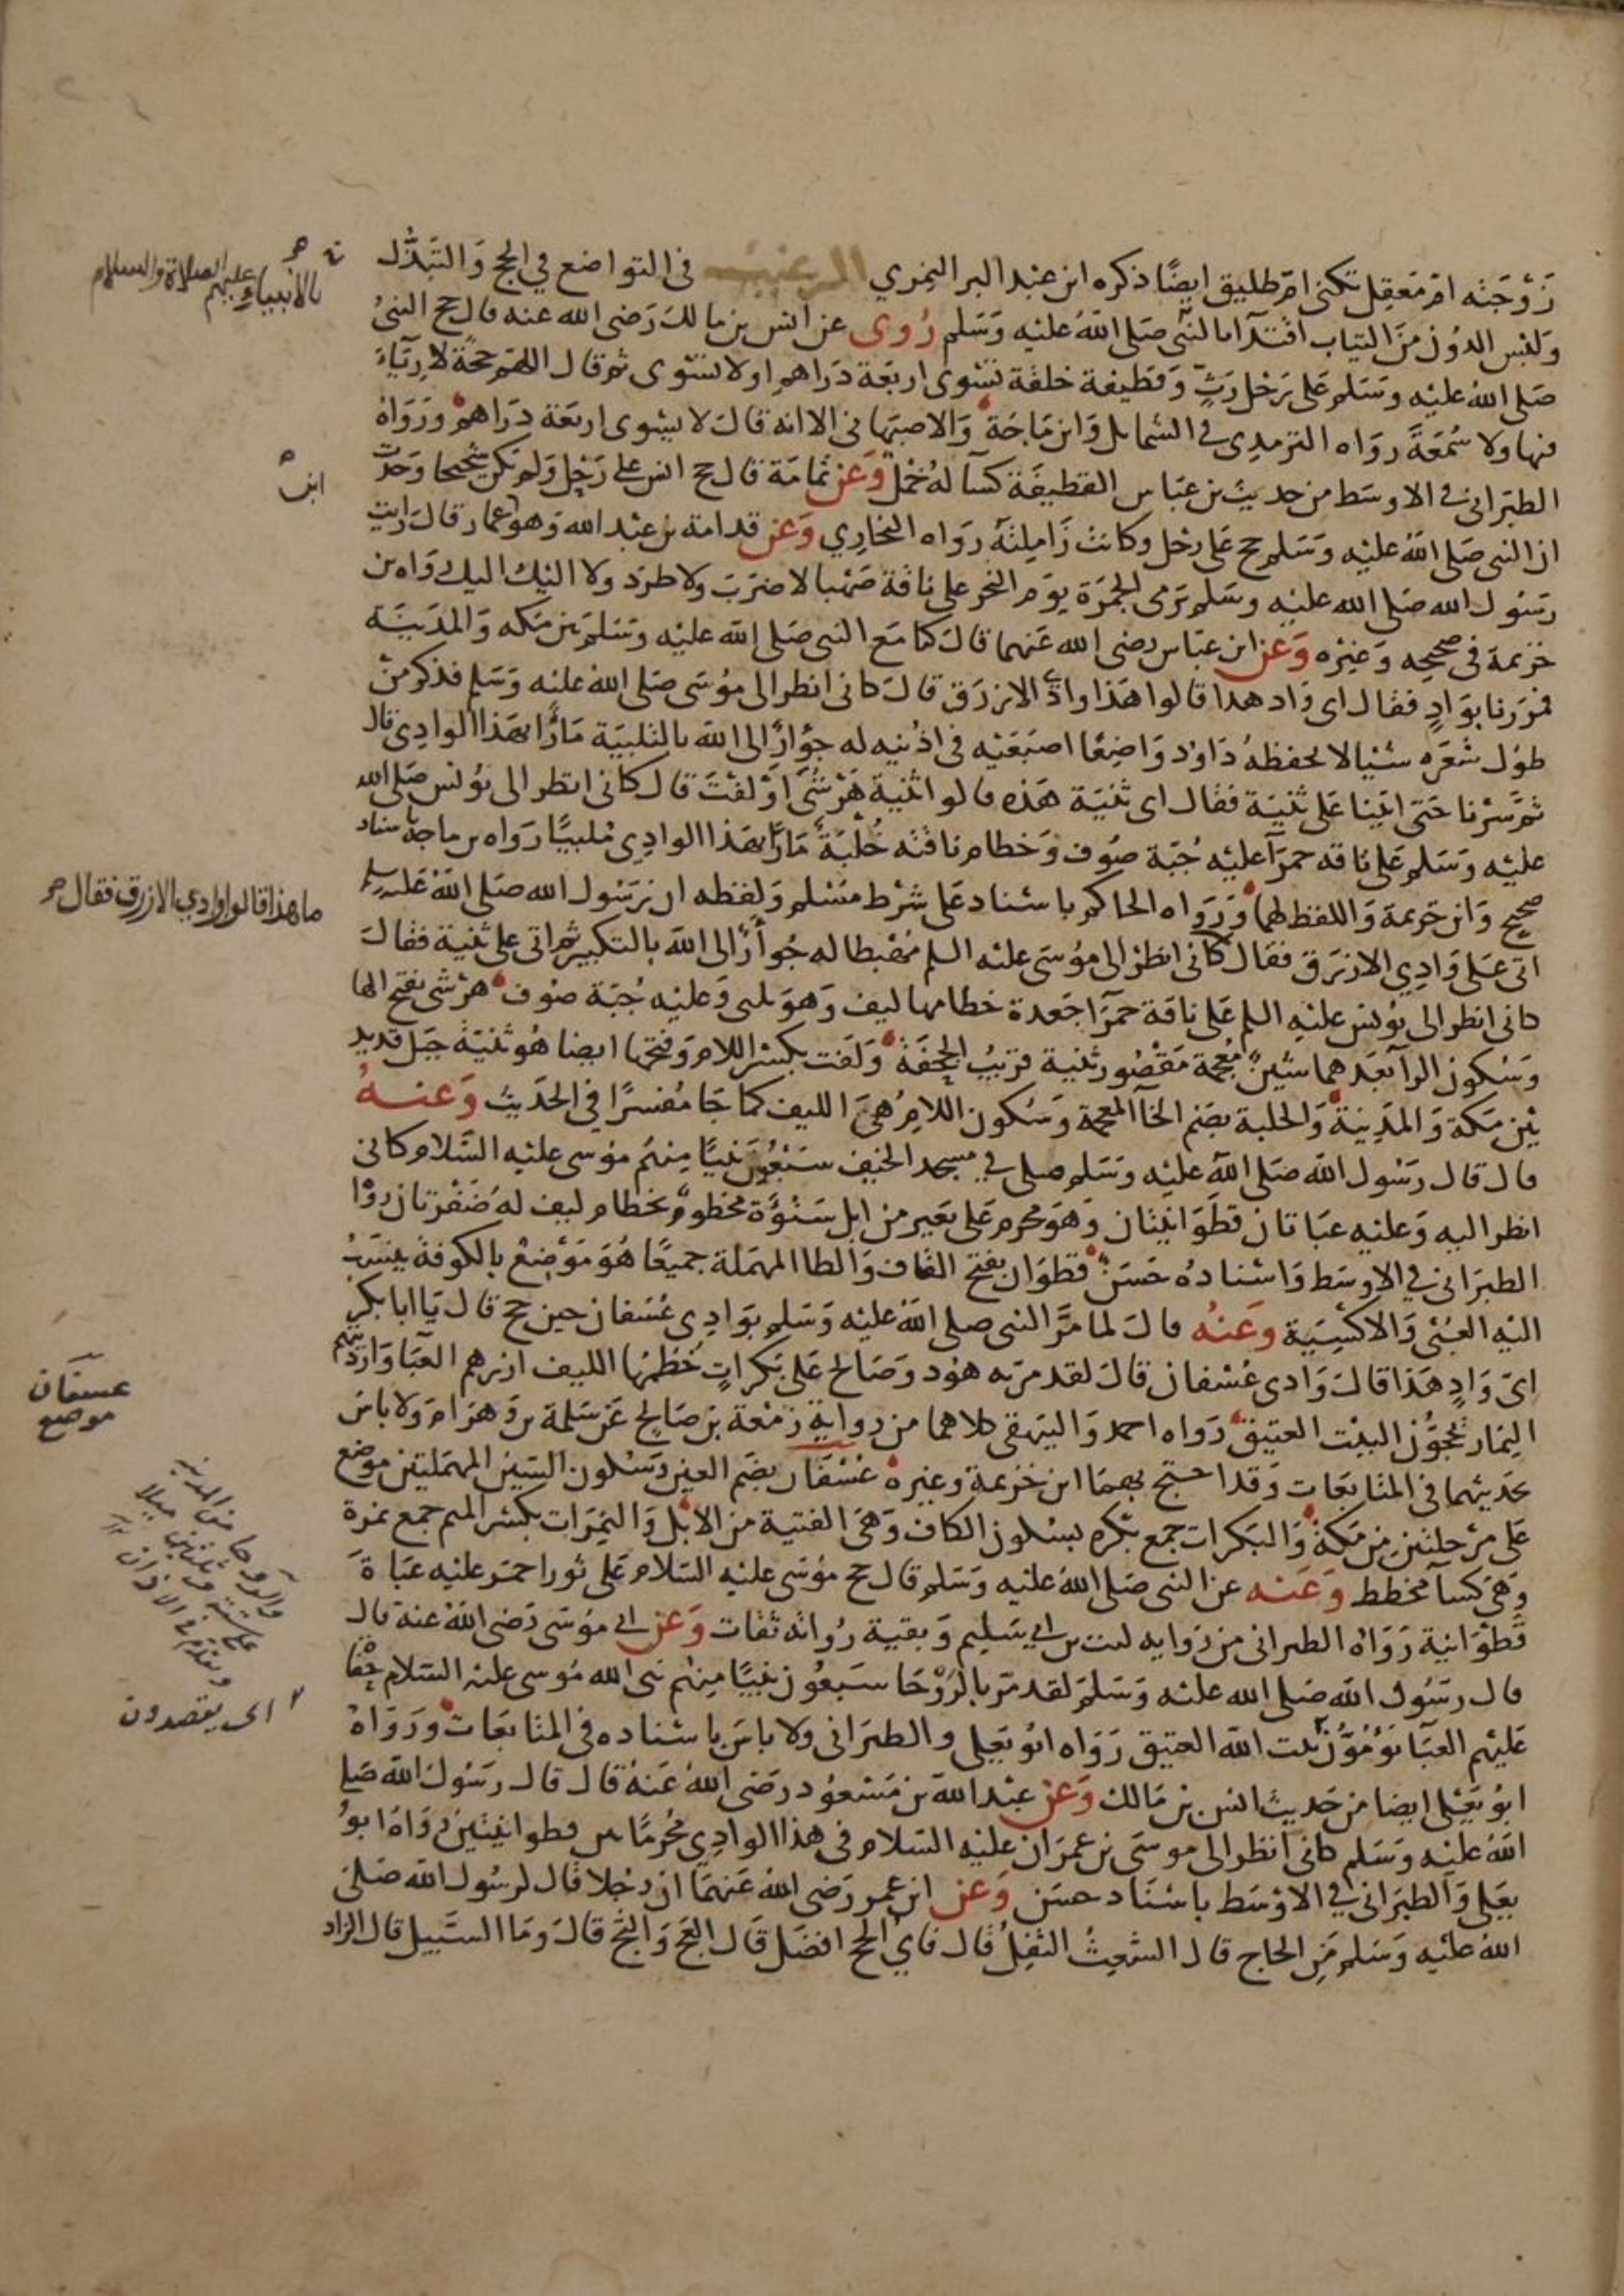 زَوْجَته ام مَعقِل تكنى امّ طليق ايضًا ذكره ابن عبْد البر النِمري الترغيب في التواضع في الحج وَالتبَذُّل
وَلبْس الدوُن مِنَ الثياب اقتدآءا بالنّبي صَلى اللهُ عليْه وَسَلم رُوى عن انس بن مالك رَضى الله عنه قال حج النبيُ
صَلى اللهُ عليْه وسَلم عَلى رَحْل رَثٍّ وَقطيفة خلقة تسْوى اربعَة دَراهم او لا تسْوى ثم قال اللهم حجَّة لا رِيَآءَ
فيها ولا سُمْعَةَ روَاه الترمدِى في الشمايل وَابن مَاجَة وَالاصبَهاني الا انه قالَ لا يسْوى اربَعة دَرَاهم ورَوَاهُ
الطبَراني في الاوسَط من حديث بن عبَاس القطيفَة كسآ لهُ خمْل وَعَن ثمامَة قال حج انس على رَحْل وَلم يكن شحيحا وَحَدث
ان النبي صَلى اللهُ عليْه وَسَلم حج عَلى رَحْل وكانت زَامِلتَه رَوَاه البخارِي وَعَن قدامة بن عبْد الله وَهو ابن عمار قالَ رايت
رسُول الله صَلى الله عليْه وسَلم يَرمى الجمرَة يوَم النحر على ناقة صَهْبا لا ضرَبَ ولا طرَد ولا اليْك اليك روَاه بن
خزيمة في صحيحِه وَغيْره وَعَن ابن عبَاس رضى الله عَنهما قالَ كنا مَع النبي صَلى الله عليْه وسَلم بيْن مَكه وَالمَديْنَة
فمرَرنا بوَادٍ فقال اى وَاد هدا قالوا هَذا وادى الازرَق قالَ كانى انظر الى موُسَى صَلى اللهُ عليْه وَسَلم فذكر منْ
طوُل شعَره شيْيا لا يحفظهُ دَاوُد وَاضِعًا اصبَعَيْه في اذُنيه له جؤارٌ الى الله بالتلبيَة مَارًّا بهَذا الوادِى قال
ثم سرْنا حَتى اتيْنا عَلى ثنيَة فقال اى ثنيَة هَذه قالوا ثنيَة هَرْشَى اوْ لفْتَ قال كاني انظر الى يُونس صَلى الله
عليْه وَسَلم عَلى نَاقه حمرَآ عليْه جُبَّة صوُف وَخطام ناقتَه خُلْبَة مَارًّا بهَذا الوادِى مُلبيًا رَوَاه بن ماجة باسناد
صحيح وَابن خزيمة وَاللفظ لهما وَرَوَاه الحاكم باسْناد عَلى شرْط مسْلم وَلفظه ان رَسُول الله صَلى اللهُ عَليْه وسلم
اتى عَلى وَادِي الازرَق فقال كاني انظرُ الى موُسَى عليْه السلم مُهْبطا له جُوأرٌ الى الله بالتكبير ثم اتى على ثنية فقالَ
كانى انظر الى يوُنس عليْه السلم عَلى ناقة حمرَآ جَعدة خطامها ليف وَهوَ يلبى وَعليْه جُبَّة صوُف هرْشى بفتح الها
وَسُكون الرآ بَعدَهما شينٌ مُعْجمة مَقصُور ثنية قريبُ الجحفَة وَلفت بكسْر اللام وَفتحها ايضا هُو ثنيَة جَبَل قديد
بيْن مَكة وَالمدِينة وَالخلبة بضم الخآ المعجمة وَسُكون اللام هيَ الليف كما جَآ مُفسرًا في الحَديث وَعنهُ
قال قال رسُول الله صَلى اللهُ عليْه وَسَلم صلى في مسجد الخيف سَبْعُون نبيًا مِنهُم موسى عليْه السَّلام كانى
انظر اليه وَعليْه عبَاتان قطوَانيتان وَهوَ محرم عَلى بَعير من ابل شنوُءَة مخطومٌ بخطام ليف لهُ ضَفْرتان روَاه
الطبَراني في الاوسَط وَاسنادهُ حَسَنٌ قطوَان بفتح القاف وَالطا المهمَلة جميعًا هُوَ مَوْضِعٌ بالكوفة ينسَبُ
اليْه العبَىُ وَالاكسِيَة وَعَنْهُ قالَ لما مرَّ النبي صلى اللهُ عليْه وَسَلم بوَادِى عسْفان حين حج قال يَا ابا بكر
اىّ وَادٍ هَذا قالَ وَادى عُسْفان قالَ لقد مرّ به هوُد وَصَالح عَلى بَكرَاتٍ خُطمُها الليف ازرهم العبَا وَارديتهم
النِمَار يحُجوُّن البيْت العتيق رَوَاه احمد وَالبَيهقى كلاهما من روايةِ زمْعة بن صَالح عَن سَلمة بن وَهرَام وَلا باس
بحَديثهما في المتابَعات وَقد احتج بهمَا ابن خزيمة وغيره عُسْفَان بضَم العين وَسُكون السّين المهمَلتيْن موضع
عَلى مَرْحلتيْن مِن مَكة وَالبَكرات جَمع بَكره بسكون الكاف وَهىَ الفتية مِن الابل وَالنِمَرات بكسْر الميم جمع نمرة
وَهىَ كسآ مخطط وَعَنه عن النبي صَلى اللهُ عليْه وَسَلم قال حج موُسَى عليْه السَلام عَلى ثور احمَر عليْه عبَاةَ
قَطوَانية رَوَاهُ الطبرانى من رَوايه ليث بن ابي سَليم وَبقية رُواته ثقات وَعَن ابي موُسَى رَضى اللهُ عنه قال
قال رسُول الله صَلى الله عليْه وَسَلم لقد مَر بالرَّوْحَا سَبعوُن نبيًا مِنهُم نبى الله موُسى عليْه السَلام حُفَا
عَليْهم العبَآ يَؤُمُّوُن بَيت الله العتيق رَوَاه ابوُ يَعلى والطبَرانى ولا باسَ باسْناده في المتابَعات وَرَوَاهُ
ابوُ يَعْلى ايضا مِن حَديث انس بن مَالك وَعَن عبْد الله بن مَسْعوُد رضَى اللهُ عَنهُ قال قال رسُولُ الله صَلى
اللهُ عليْه وَسَلم كانى انظر الى موسَى بن عمرَان عليْه السَلام في هذا الوادِى مُحْرِمًا بين قطوانيتَيْن رَوَاهُ ابوُ
يَعلى وَالطبَرانى في الاوْسَط باسْنَاد حسَن وَعَن ابن عمر رَضى اللهُ عَنهمَا ان رَجُلا قال لرسُول الله صَلى
اللهُ عليْه وَسَلم مَنِ الحاج قال الشَعِثُ التفِلُ قال فاىُ الحج افضَل قَال العَج وَالثَج قالَ ومَا السَّبيل قال الزاد
بالانبياء عليهم الصلاة والسلام
ابن
ما هذا قالوا وادي الازرق فقال
عسفان
موضع
والروحا من المدينه
على ستة وثلثين ميلا
اى يقصدون